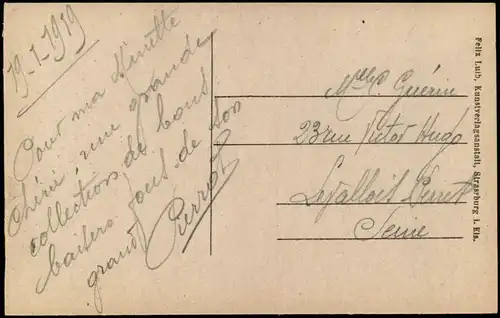 19-1-1919
Pour ma Minette
Chérie, une grande
collection de bons
baisers fous de son
grand Pierrot
Melle C. Guérin
23 rue Victor Hugo
Levallois Perret
Seine
Felix Luib, Kunstverlagsanstalt, Strassburg i. Els.